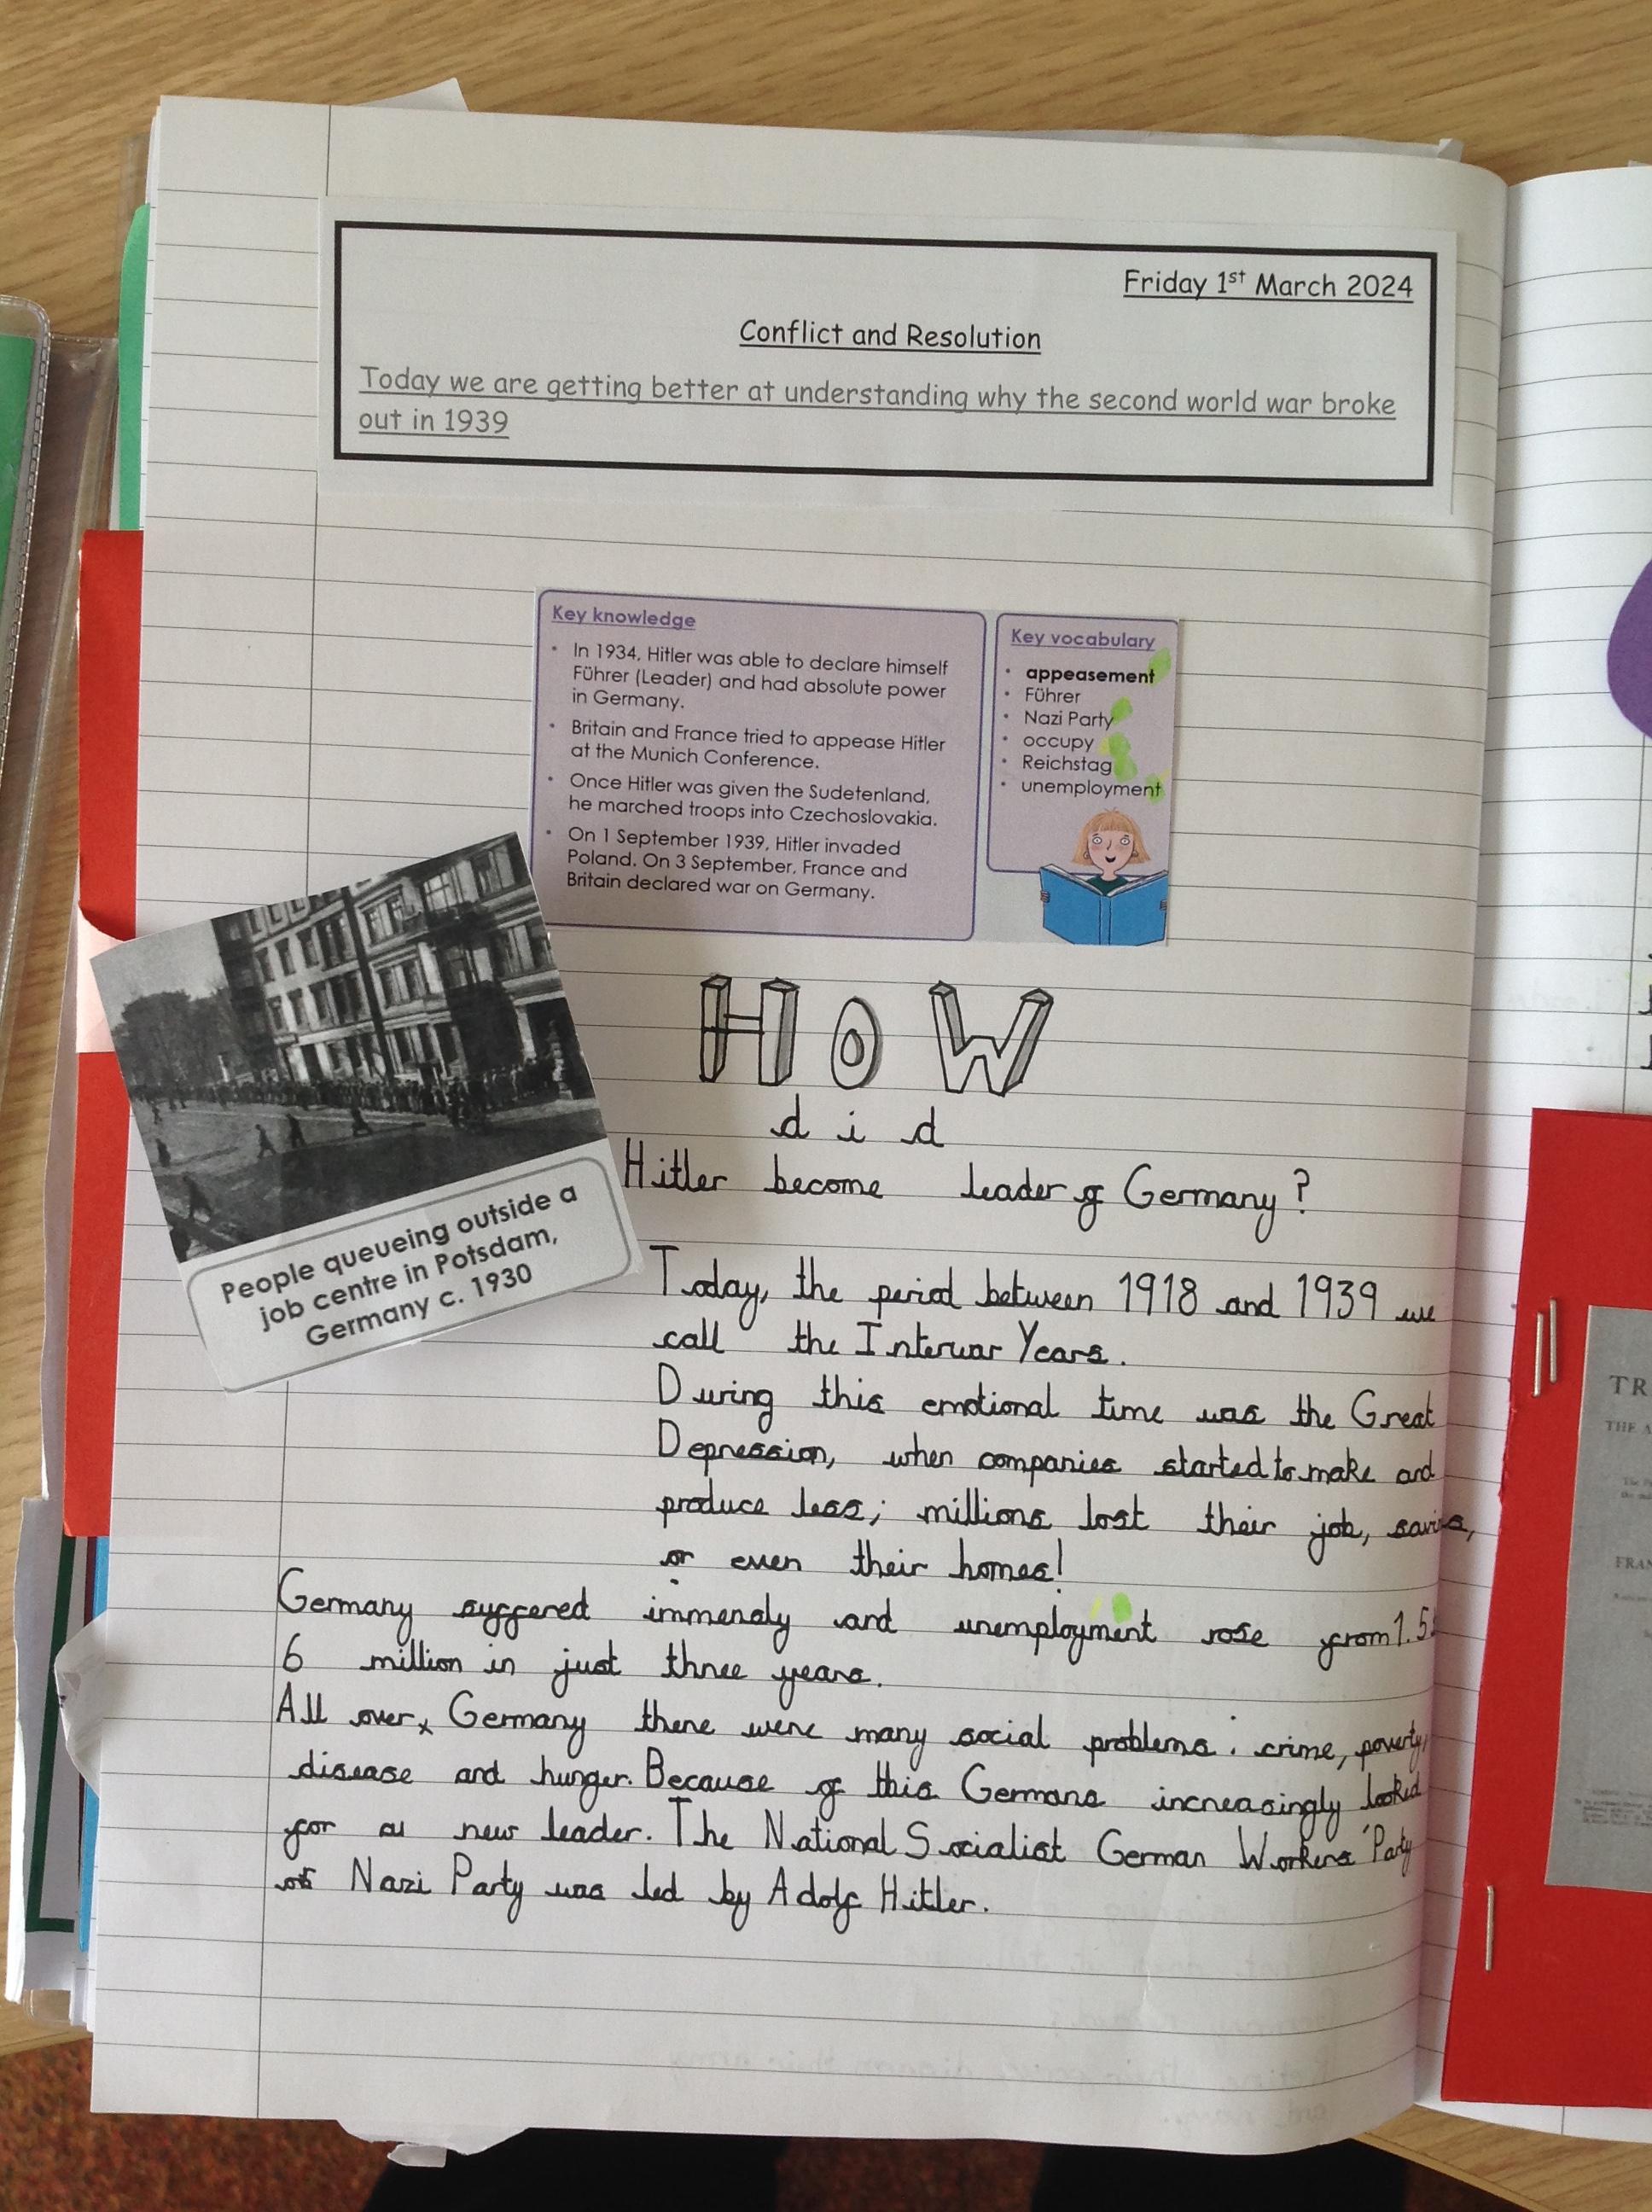 Friday 1st March 2024
Conflict and Resolution
Today we are getting better at understanding why the second world war broke
out in 1939
Key knowledge
• In 1934, Hitler was able to declare himself
Führer (Leader) and had absolute power
in Germany.
• Britain and France tried to appease Hitler
at the Munich Conference.
• Once Hitler was given the Sudetenland,
he marched troops into Czechoslovakia.
• On 1 September 1939, Hitler invaded
Poland. On 3 September, France and
Britain declared war on Germany.
Key vocabulary
• appeasement
• Führer
• Nazi Party
• occupy
• Reichstag
• unemployment
People queueing outside a
job centre in Potsdam,
Germany c. 1930
HOW
did
Hitler become leader of Germany?
Today, the period between 1918 and 1939 we
call the Interwar Years.
During this emotional time was the Great
Depression, when companies started to make and
produce less; millions lost their job,
or even their homes!
Germany suffered immensly and unemployment rose from 1.5
6 million in just three years.
All over Germany there were many social problems: crime, poverty,
disease and hunger. Because of this Germans increasingly looked
for a new leader. The National Socialist German Workers' Party
or Nazi Party was led by Adolf Hitler.
TR
THE A
FRAN